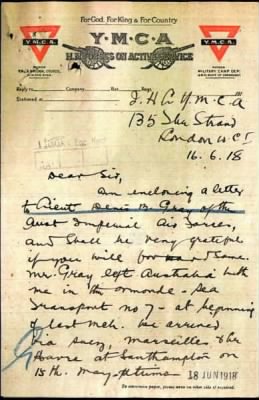 For God, For King & For Country
Y·M·C·A
H.M. FORCES ON ACTIVE SERVICE
Y.M.C.A.
Y.M.C.A.
Reply to Company Bat. Regt.
Stationed at
J. H. C/o Y.M.C.A
135 The Strand
London W C1
16.6.18
Dear Sir,
Am enclosing a letter
to Lieut Denis B. Gray of the
Aust Imperial Air Forces,
and shall be very grateful
if you will forward same.
Mr. Gray left Australia with
me in the Ormonde - Sea
Transport no 7 - at beginning
of last Mch. he arrived
via Suez, Marseilles & the
Havre at Southampton on
15th. May
18 JUN 1918
To economise paper, please write on the other side, if required.